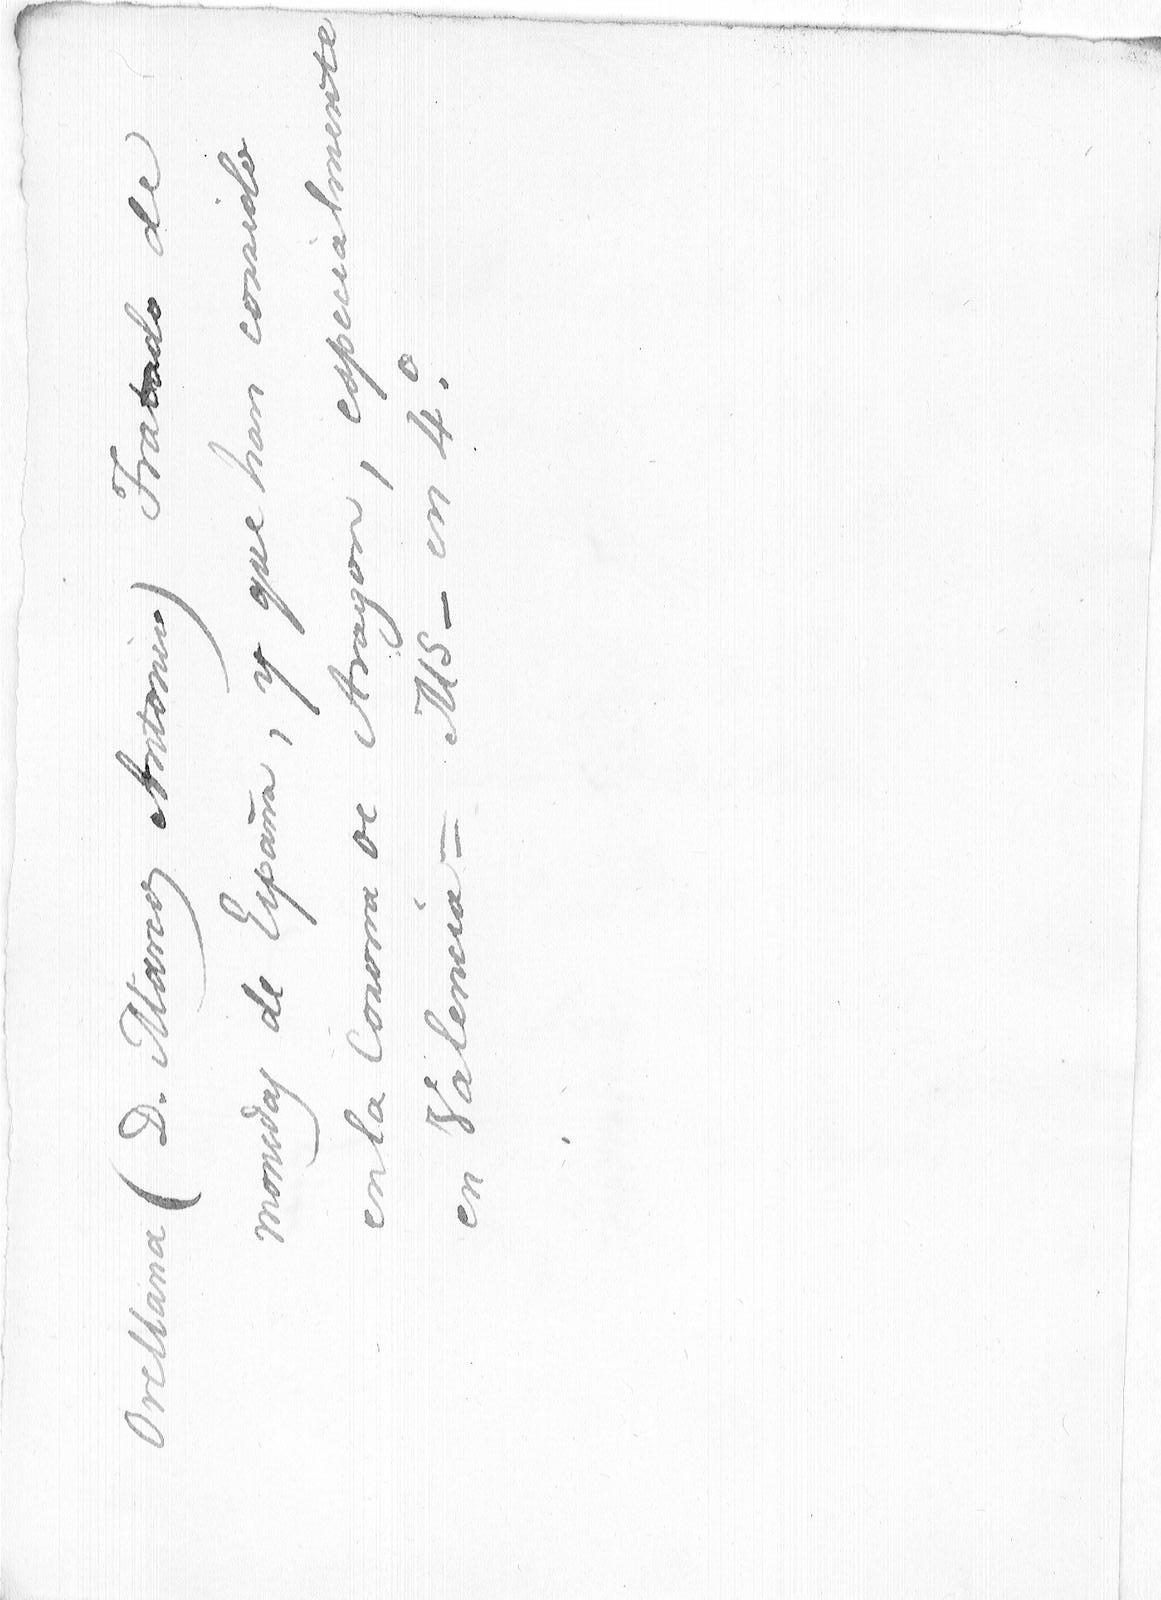 Orellana (D. Marcos Antonio) Tratado de
monedas de España, y que han corrido
en la Corona de Aragon, especialmente
en Valencia = MS - en 4.º